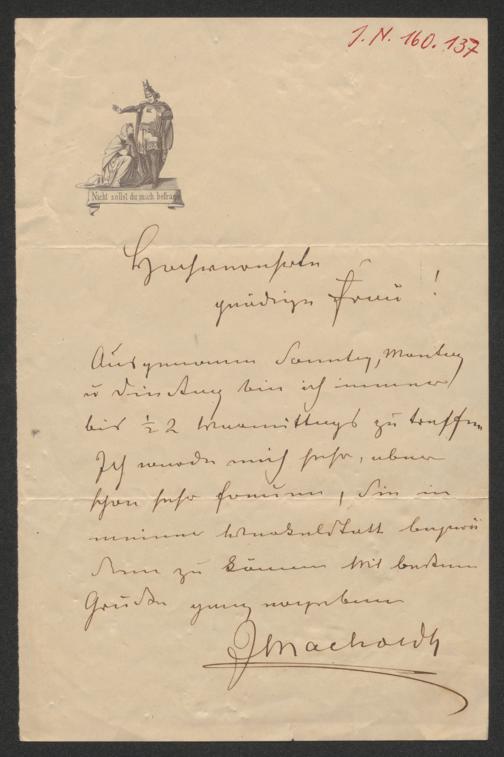 J. N. 160.137
Nicht sollst du mich befrag
Hochverehrte
gnädige Frau!
Ausgenomm Sonntag, Montag
u Dinstag bin ich immer
bis ½ 2 Vormittags zu treffen
Ich werde mich sehr, aber
schon sehr freuen, Sie in
meiner begrü
ßen zu können Mit besten
Grüßen ganz ergebener
JMachold